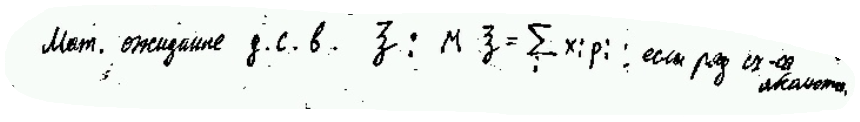 Мат. ожидание д.с.в. ξ: M ξ = ∑ᵢ xᵢpᵢ : если ряд сх-ся
абсолютно.